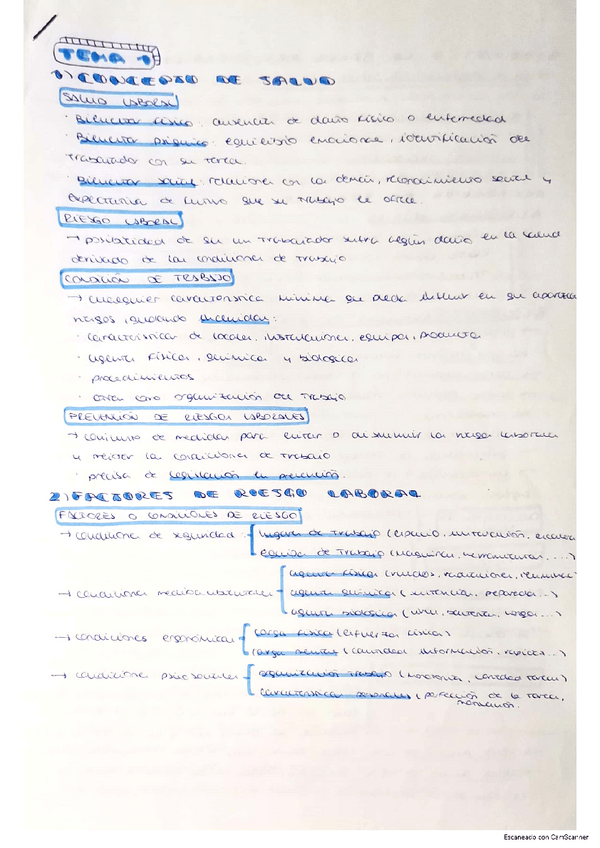 TEMA 1
1) CONCEPTO DE SALUD
SALUD LABORAL
· Bienestar físico: ausencia de daño físico o enfermedad
· Bienestar psíquico: equilibrio emocional, identificación del
trabajador con su tarea.
· Bienestar social: relaciones con los demás, reconocimiento social y
expectativa de futuro que su trabajo le ofrece.
RIESGO LABORAL
→ posibilidad de que un trabajador sufra algún daño en la salud
derivado de las condiciones de trabajo
CONDICIÓN DE TRABAJO
→ cualquier característica mínima que pueda influir en que aparezca
riesgos, quedando incluidas:
· características de locales, instalaciones, equipos, productos
· agentes físicos, químicos y biológicos
· procedimientos
· organización del trabajo
PREVENCIÓN DE RIESGOS LABORALES
→ conjunto de medidas para evitar o disminuir los riesgos laborales
y mejorar las condiciones de trabajo
· precisa de legislación en prevención.
2) FACTORES DE RIESGO LABORAL
FACTORES O CONDICIONES DE RIESGO
→ condiciones de seguridad
lugares de trabajo (espacio,
equipos de trabajo (máquinas, herramientas, ...)
agentes físicos (ruidos, radiaciones,
→ condiciones medioambientales
agentes químicos (
agentes biológicos (virus, bacterias, hongos...)
→ condiciones ergonómicas
carga física (esfuerzos físicos)
carga mental (cantidad información, rapidez...)
→ condiciones psicosociales
organización trabajo (monotonía, cantidad tareas)
características personales (percepción de la tarea,
motivación.
Escaneado con CamScanner